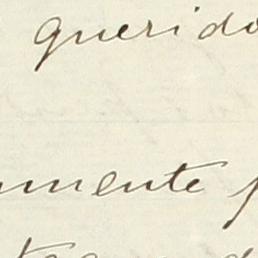 querido
mente p